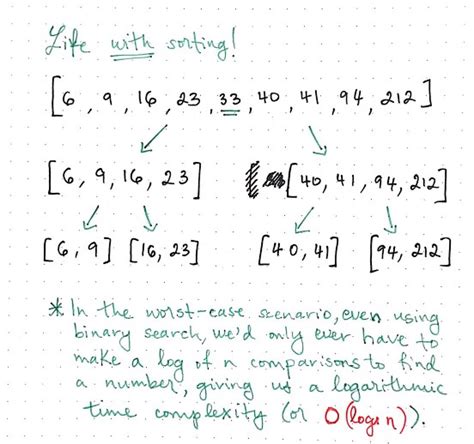 Life with sorting!
[6, 9, 16, 23, 33, 40, 41, 94, 212]
[6, 9, 16, 23] [40, 41, 94, 212]
[6, 9] [16, 23] [40, 41] [94, 212]
* In the worst-case scenario, even using
binary search, we'd only ever have to
make a log of n comparisons to find
a number, giving us a logarithmic
time complexity (or O(log n)).